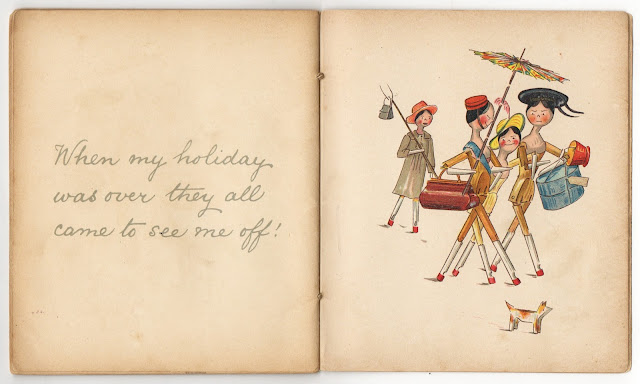 When my holiday
was over they all
came to see me off!